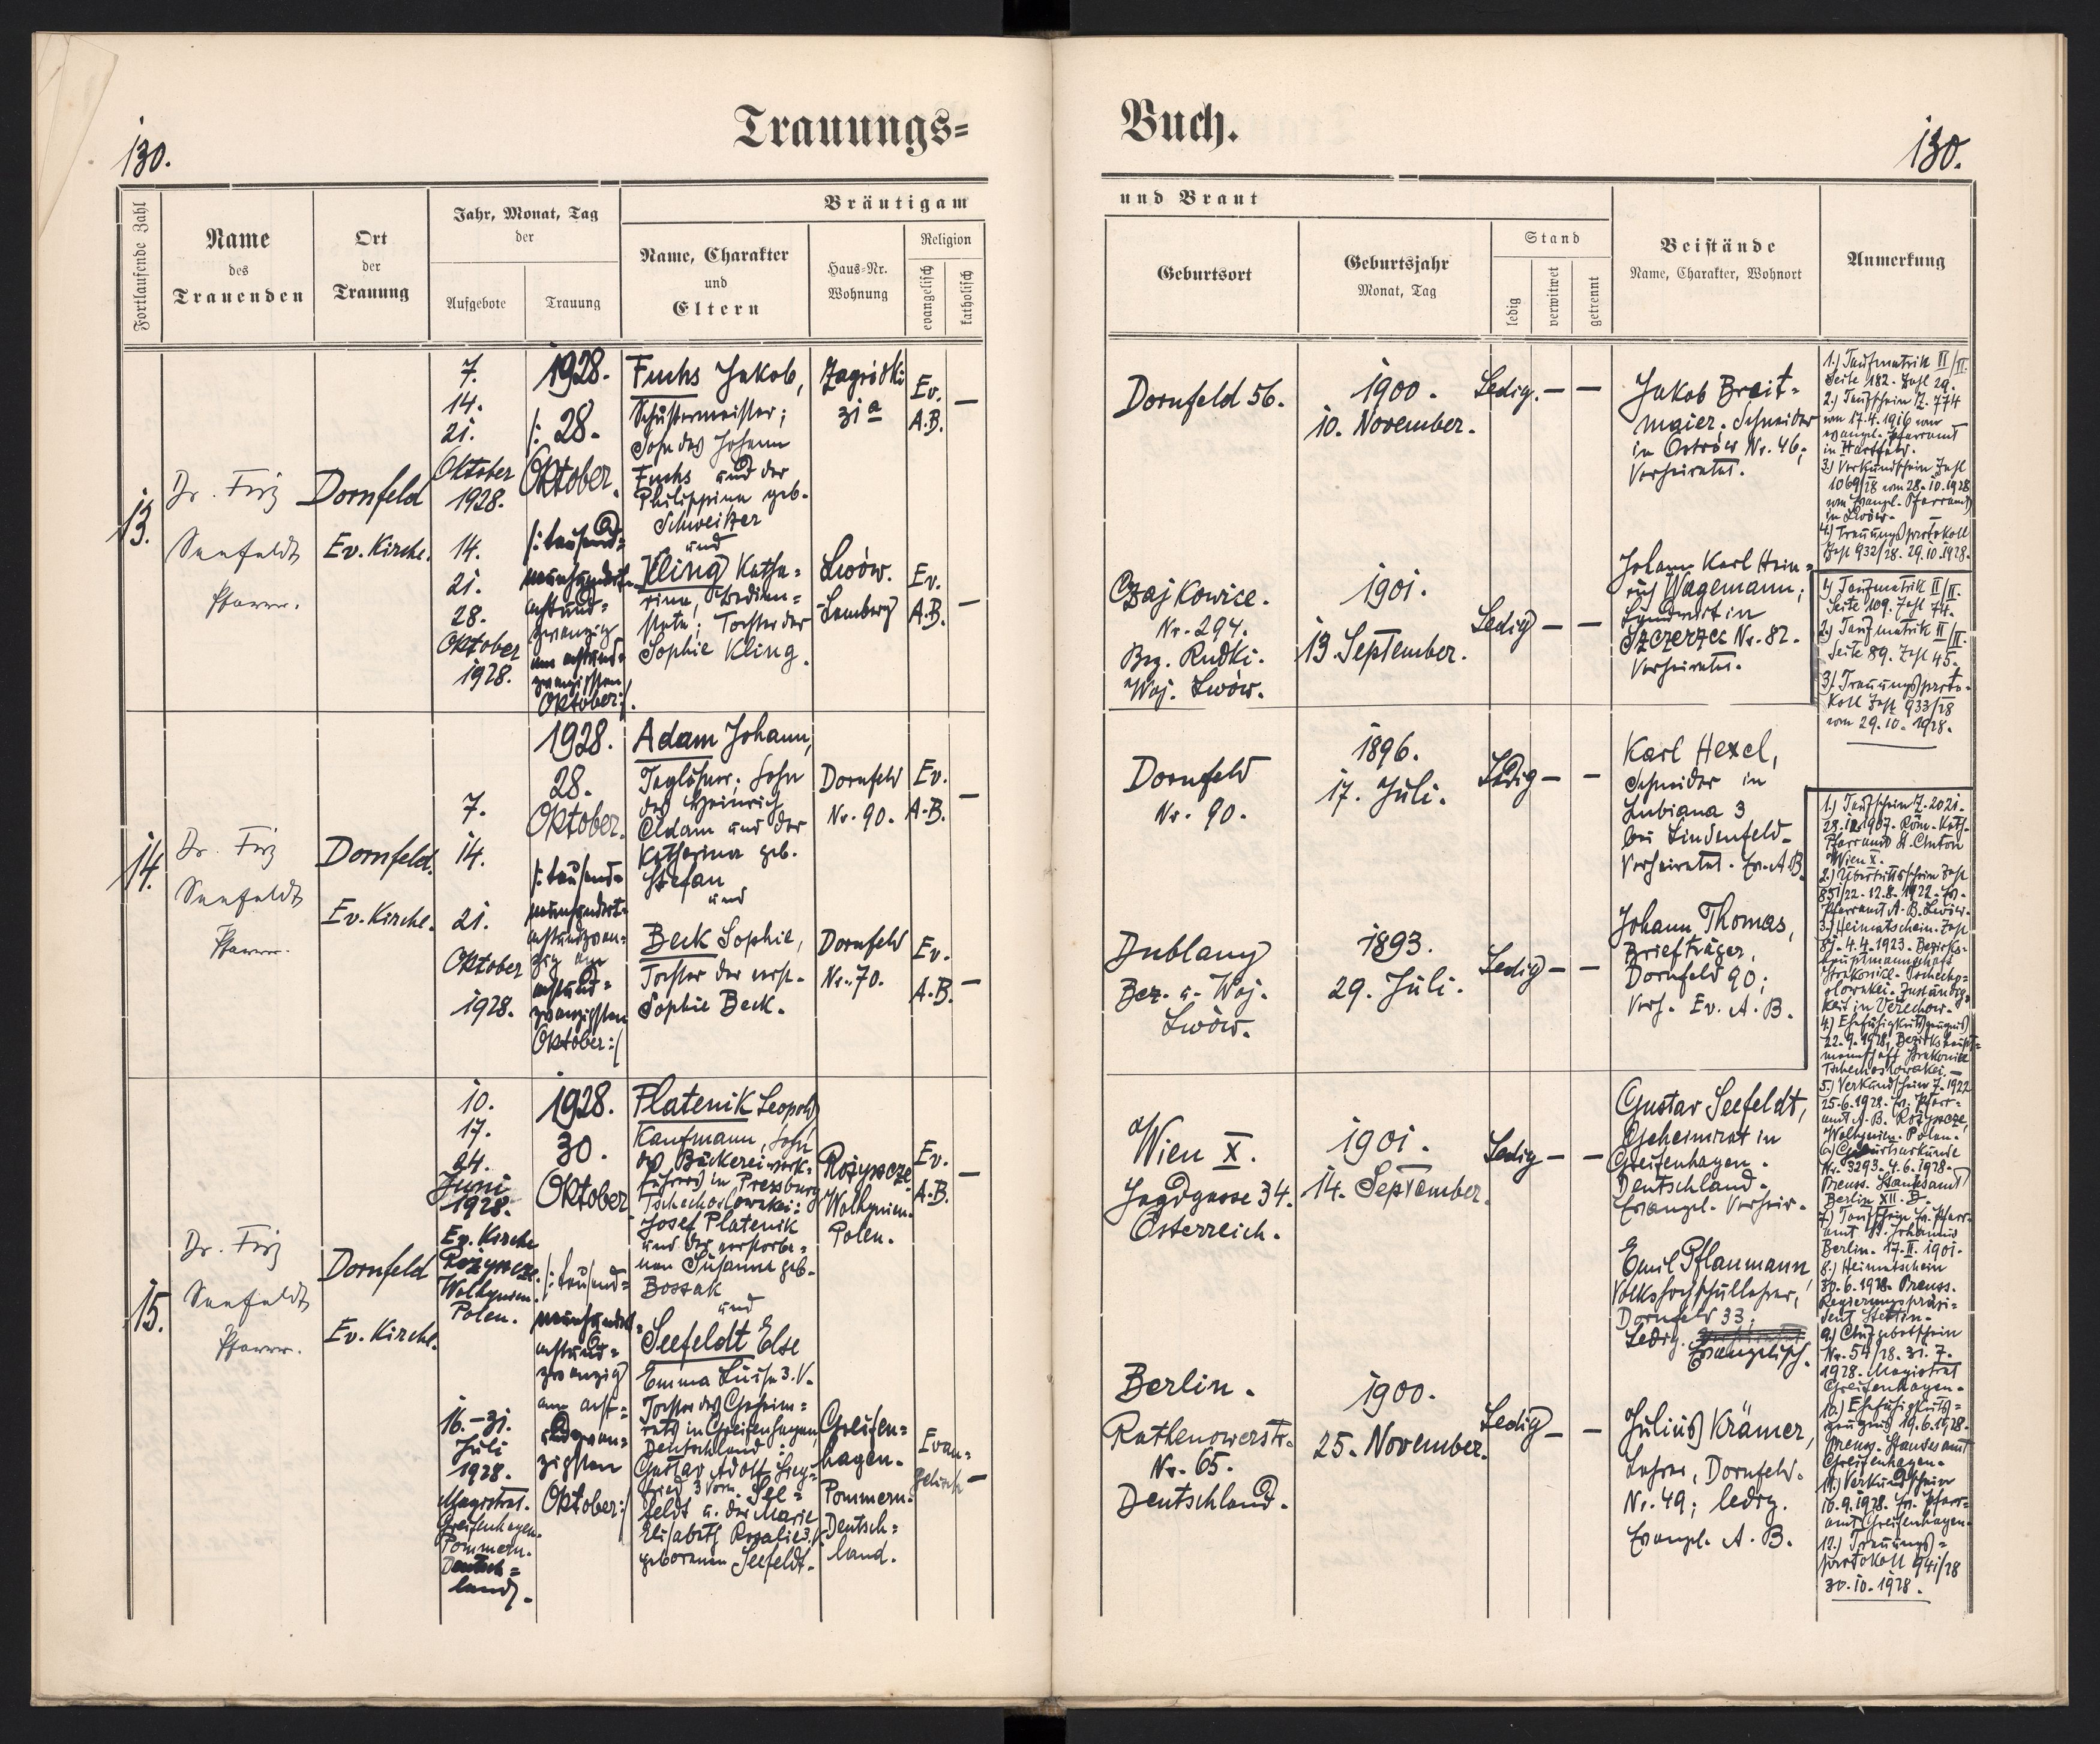 Trauungs=
Buch.
130.
130.
Fortlaufende Zahl
Name
des
Trauenden
Ort
der
Trauung
Jahr, Monat, Tag
der
Aufgebote
Trauung
Bräutigam
Name, Charakter
und
Eltern
Haus-Nr.
Wohnung
Religion
evangelisch
katholisch
und Braut
Geburtsort
Geburtsjahr
Monat, Tag
Stand
ledig
verwitwet
getrennt
Beistände
Name, Charakter, Wohnort
Anmerkung
13.
Dr. Friz
Seefeldt
Pfarrer.
Dornfeld
Ev. Kirche.
7.
14.
21.
Oktober
1928.
14.
21.
28.
Oktober
1928.
1928.
/: 28.
Oktober.
/: tausend=
neunhundert=
achtund=
zwanzig
am achtund=
zwanzigsten
Oktober :/.
Fuchs Jakob,
Schustermeister;
Sohn des Johann
Fuchs und der
Philippina geb.
Schweitzer
und
Kling Katha=
rina, Bedien=
stete; Tochter der
Sophie Kling.
Zagródki
31a
Lwów.
-Lemberg
Ev.
A.B.
–
Ev.
A.B.
–
Dornfeld 56.
Czajkowice.
Nr. 294.
Bez. Rudki.
Woj. Lwów.
1900.
10. November.
1901.
13. September.
Ledig. – –
Ledig – –
Jakob Breit=
maier. Schneider
in Ostrów Nr. 46;
Verheiratet.
Johann Karl Hein=
rich Wagemann;
Landwirt in
Szczerzec Nr. 82.
Verheiratet.
1.) Taufmatrik II/II.
Seite 182. Zahl 29.
2.) Taufschein Z. 774
vom 17.4.1916 vom
evangel. Pfarramt
in Hartfeld.
3.) Verkündschein Zahl
1069/28 vom 28.10.1928
vom Evangl. Pfarramt
in Lwów.
4.) Trauungsprotokoll
Zahl 932/28. 29.10.1928.
14.
Dr. Friz
Seefeldt
Pfarrer.
Dornfeld.
Ev. Kirche.
7.
14.
21.
Oktober
1928.
1928.
28.
Oktober.
/: tausend=
neunhundert=
achtundzwan=
zig am
achtund=
zwanzigsten
Oktober :/
Adam Johann,
Taglöhner; Sohn
des Heinrich
Adam und der
Katharina geb.
Stefan
und
Beck Sophie,
Tochter der verst.
Sophie Beck.
Dornfeld
Nr. 90.
Dornfeld
Nr. 70.
Ev.
A.B.
–
Ev.
A.B.
–
Dornfeld
Nr. 90.
Dublany
Bez. u. Woj.
Lwów.
1896.
17. Juli.
1893.
29. Juli.
Ledig – –
Ledig – –
Karl Hexel,
Schneider in
Lubiana 3
bei Lindenfeld.
Verheiratet. Ev. A.B.
Johann Thomas,
Briefträger,
Dornfeld 90;
Verh. Ev. A. B.
1.) Taufmatrik II/II.
Seite 109. Zahl 74.
2.) Taufmatrik II/II.
Seite 89. Zahl 45.
3.) Trauungsproto=
koll Zahl 933/28
vom 29.10.1928.
15.
Dr. Friz
Seefeldt
Pfarrer.
Dornfeld
Ev. Kirche.
10.
17.
24.
Juni
1928.
Ev. Kirche
Rożyszcze.
Wolhynien.
Polen.
16.–31.
Juli
1928.
Magistrat.
Greifenhagen.
Pommern.
Deutsch=
land.
1928.
30.
Oktober
/: tausend=
neunhundert=
achtund=
zwanzig
am
zigsten
Oktober :/
Platenik Leopold
Kaufmann, Sohn
des Bäckereiwerk=
führers in Pressburg
Tschechoslowakei:
Josef Platenik
und der verstorbe=
nen Susanna geb.
Bossak
und
Seefeldt Else
Emma Luise 3.V.
Tochter des Geheim=
rats in Greifenhagen,
Deutschland:
Gustav Adolf Sieg=
fried 3 Vorn. See=
feldt u. der Marie
Elisabeth Rosalie 3.
geborenen Seefeldt.
Rożyszcze
Wolhynien.
Polen.
Greifen=
hagen.
Pommern.
Deutsch=
land.
Ev.
A.B.
–
Evan=
gelisch
–
Wien X.
Jagdgasse 34.
Österreich.
Berlin.
Rathenowerstr.
Nr. 65.
Deutschland.
1901.
14. September.
1900.
25. November.
Ledig – –
Ledig – –
Gustav Seefeldt,
Geheimrat in
Greifenhagen.
Deutschland.
Evangel. Verheir.
Emil Pflaumann,
Volkshochschullehrer,
Dornfeld 33;
Ledig.
Evangelisch.
Julius Krämer,
Lehrer, Dornfeld.
Nr. 49; ledig.
Evangl. A. B.
1.) Taufschein Z. 2021.
Röm. Kath.
Pfarramt St. Anton
Wien X.
2.) Übertrittsschein Zahl
851/22. 12.8.1922. Ev.
Pfarramt A.B. Lwów.
3.) Heimatschein. Zahl
4.4.1923. Bezirks=
hauptmannschaft
Strakonice. Tschecho=
slowakei. Zuständig=
keit in
4.) Ehefähigkeitszeugnis
22.9.1928, Bezirkshaupt=
mannschaft Strakonice
Tschechoslowakei.
5.) Verkündschein Z. 1922
25.6.1928. Ev. Pfarr=
amt A.B. Rożyszcze,
Wolhynien. Polen.
6.) Geburtsurkunde
Nr. 3293. 4.6.1928.
Preuss. Standesamt
Berlin XII. B.
7.) Taufschein Ev. Pfarr=
amt St. Johannis
Berlin. 17.II.1901.
8.) Heimatschein
30.6.1928. Preuss.
Regierungspräsi=
dent Stettin.
9.) Aufgebotschein
Nr. 54/28. 31.7.
1928. Magistrat
Greifenhagen.
10.) Ehefähigkeits=
zeugnis 19.6.1928.
Preuss. Standesamt
Greifenhagen.
11.) Verkündschein
16.9.1928. Ev. Pfarr=
amt Greifenhagen.
12.) Trauungs=
protokoll 941/28
30.10.1928.